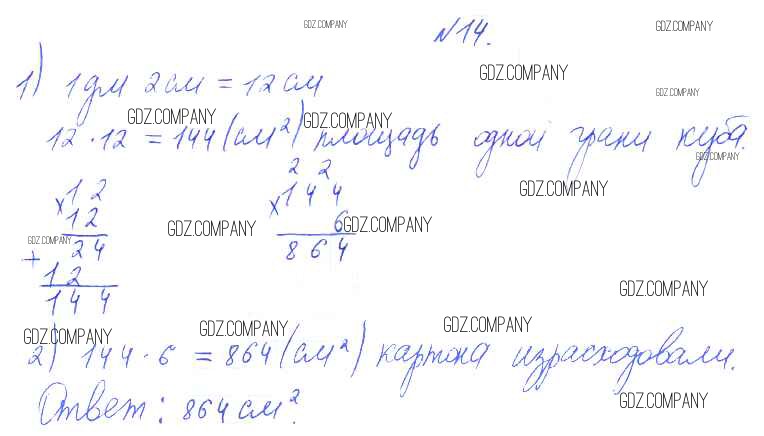 GDZ.COMPANY
№14.
GDZ.COMPANY
1) 1 дм 2 см = 12 см
GDZ.COMPANY
GDZ.COMPANY
GDZ.COMPANY
GDZ.COMPANY
12 · 12 = 144 (см²) площадь одной грани куба.
GDZ.COMPANY
GDZ.COMPANY
× 12
12
24
+ 12
144
2 2
× 144
6
864
GDZ.COMPANY
GDZ.COMPANY
GDZ.COMPANY
GDZ.COMPANY
GDZ.COMPANY
GDZ.COMPANY
GDZ.COMPANY
2) 144 · 6 = 864 (см²) картона израсходовали.
Ответ: 864 см².
GDZ.COMPANY